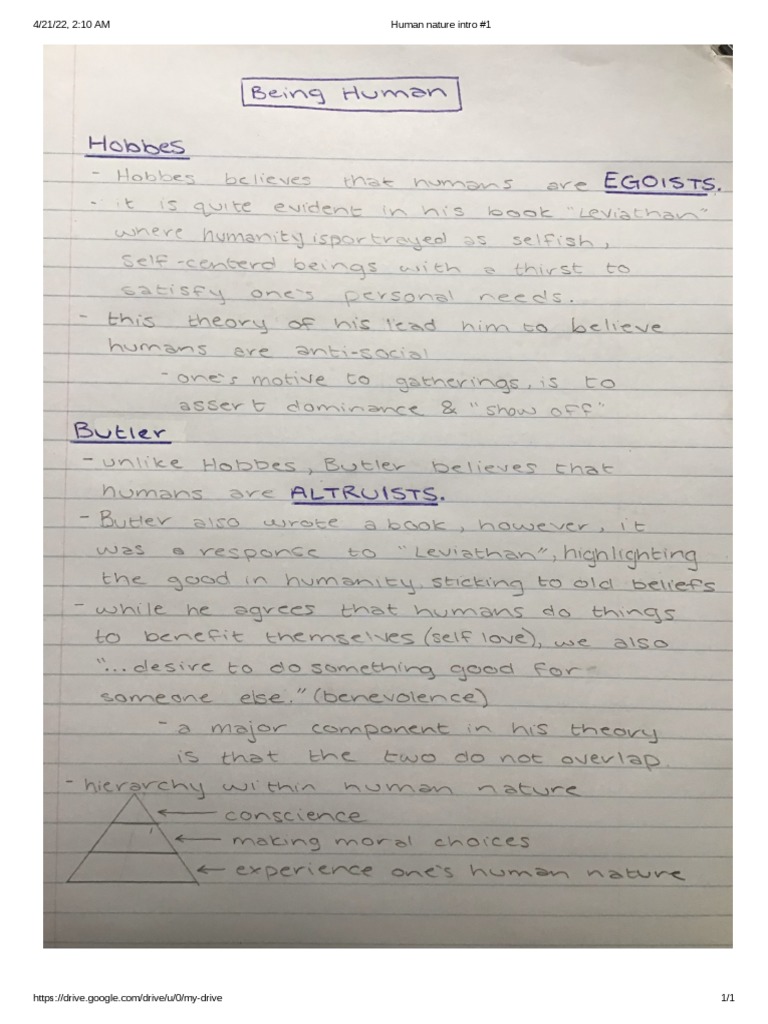 4/21/22, 2:10 AM Human nature intro #1
Being Human
Hobbes
- Hobbes believes that humans are EGOISTS.
- it is quite evident in his book "Leviathan"
where humanity is portrayed as selfish,
self-centerd beings with a thirst to
satisfy one's personal needs.
- this theory of his lead him to believe
humans are anti-social
- one's motive to gatherings, is to
assert dominance & "show off"
Butler
- unlike Hobbes, Butler believes that
humans are ALTRUISTS.
- Butler also wrote a book, however, it
was a response to "Leviathan", highlighting
the good in humanity, sticking to old beliefs
- while he agrees that humans do things
to benefit themselves (self love), we also
"...desire to do something good for
someone else." (benevolence)
- a major component in his theory
is that the two do not overlap.
- hierarchy within human nature
conscience
making moral choices
experience one's human nature
https://drive.google.com/drive/u/0/my-drive 1/1